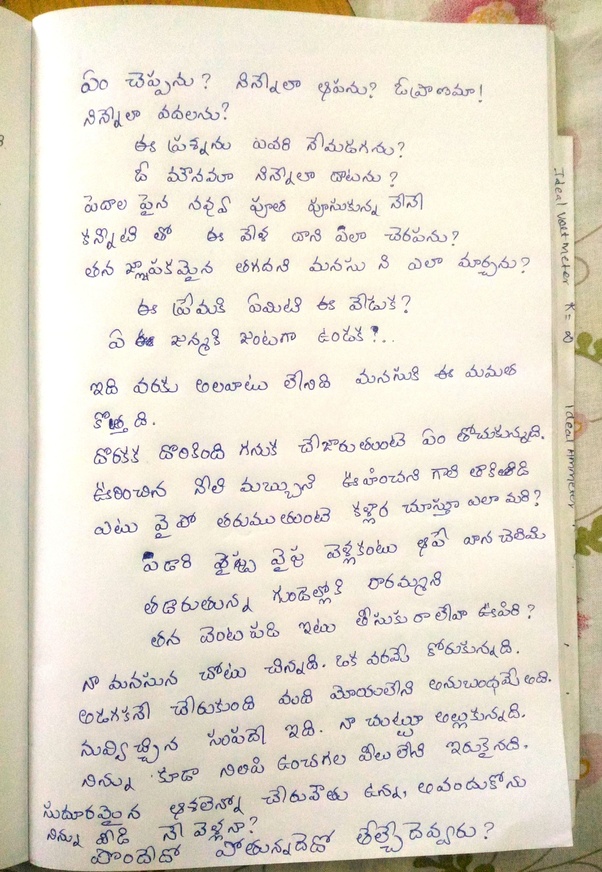 ఏం చెప్పను? నిన్నెలా ఆపను? ఓప్రాణమా!
నిన్నెలా వదలను?
ఈ ప్రశ్నను ఎవరి నేమడగను?
ఓ మౌనమా నిన్నెలా దాటను?
పెదాల పైన నవ్వు పూత పూసుకున్న నేనే
కన్నీటి తో ఈ వేళ దాని ఎలా చెరపను?
తన జ్ఞాపకమైన తగదని మనసు ని ఎలా మార్చను?
ఈ ప్రేమకి ఏమిటి ఈ వేడుక?
ఏ ఈ జన్మకి జంటగా ఉండక?..
ఇది వరకు అలవాటు లేనిది మనసుకి ఈ మమత
కొత్త ది.
దొరకక దొరికింది గనుక చేజారుతుంటె ఏం తోచుకున్నది.
ఊరించిన నీలి మబ్బుని ఊహించని గాలి తాకిడి
ఎటు వై పో తరుముతుంటె కళ్లార చూస్తూ ఎలా మరి?
ఎడారి వైపు వెళ్లకంటు ఆపే వాన చెలిమి
తడారుతున్న గుండెల్లోకి రారమ్మని
తన వెంట పడి ఇటు తీసుకు రా లేవా ఊపిరి?
నా మనసున చోటు చిన్నది. ఒక వరమే కోరుకున్నది.
అడగకనే చేరుకుంది మది మోయలేని అనుబంధమే అది.
నువ్వి చ్చిన సంపదే ఇది. నా చుట్టూ అల్లుకున్నది.
నిన్ను కూడా నిలిపి ఉంచగల వీలు లేని ఇరుకైనది.
సుదూరమైన ఆశలెన్నో చేరువౌతు ఉన్నా, అవందుకోను
నిన్ను వీడి నే వెళ్లనా?
పొందేదో పోతున్నదేదో తేల్చే దెవ్వరు?
Ideal Voltmeter
Ideal Ammeter